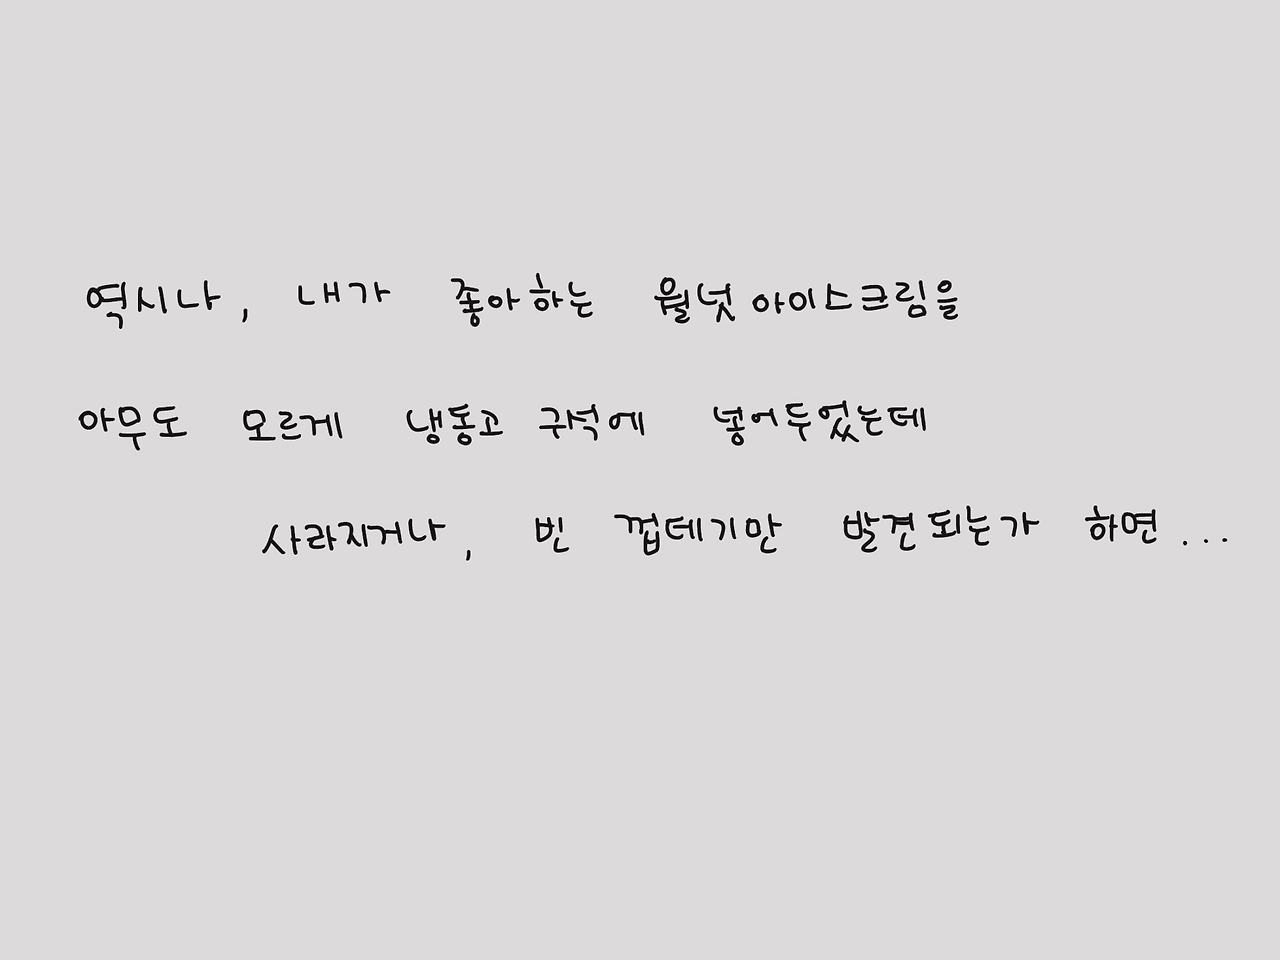 역시나, 내가 좋아하는 월넛 아이스크림을
아무도 모르게 냉동고 구석에 넣어두었는데
사라지거나, 빈 껍데기만 발견되는가 하면...